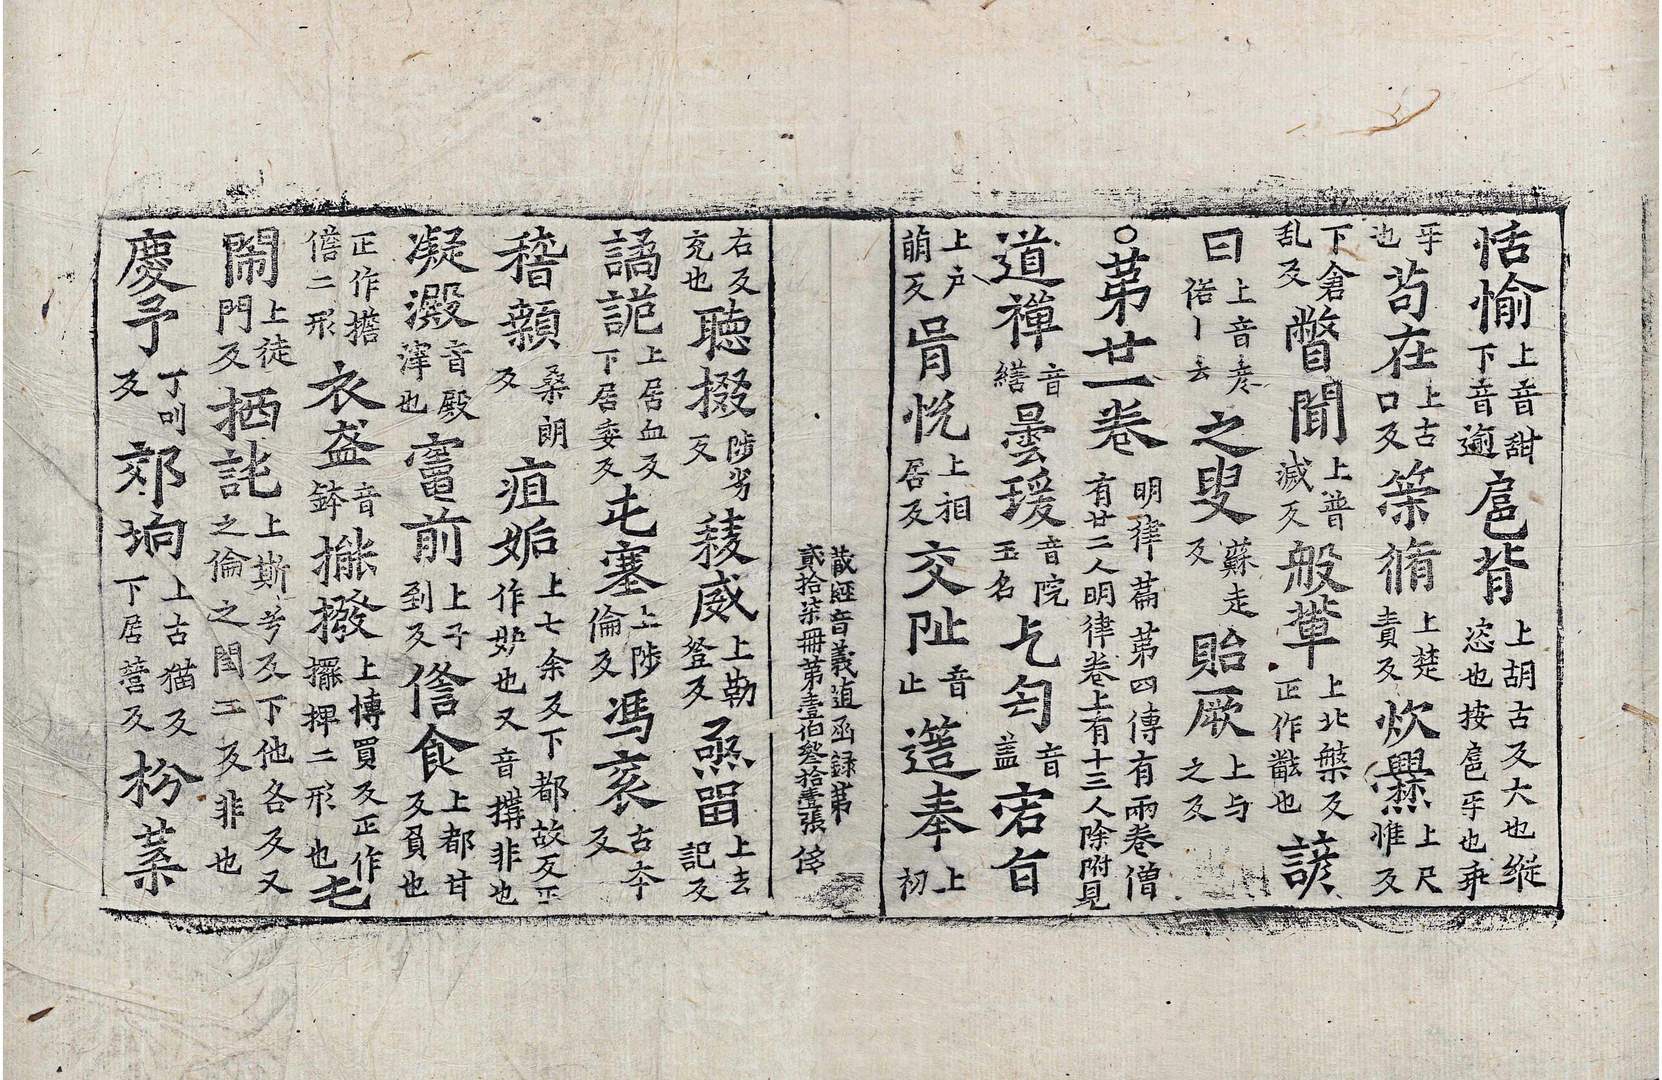 恬愉上音甜下音逾扈背上胡古反大也縱恣也按扈乎也乖
乎也苟在上古口反筞脩上楚責反炊㸑上尺惟反
下倉乱反瞥聞上普滅反般輦上北槃反正作㲠也諺
曰上音彦俗丨去之叟蘇走反貽厥上与之反
○苐廿一卷明律篇苐四傳有兩卷僧有廿二人明律卷上有十三人除附見
道禪音繕曇瑗音院玉名乞匄音盖宕自
上户萠反胥恱上相居反交阯音止簉奉上初
藏經音義逈函録苐
貳拾柒冊第壹伯叄拾壹張
右反充也聽掇陟劣反薐威上勒登反亟留上去記反
譎詭上居血反下居委反屯塞上陟倫反馮衮古夲反
稽顙桑朗反疽妬上七余反下都故反正作妒也又音搆非也
凝澱音殿滓也竃前上子到反儋食上都甘反負也
正作擔儋二形衣盋音鉢㩝撥上博買反正作擺捭二形也七
閙上徒門反栖託上斯兮反下他各反又之倫之閏二反非也
慶予丁吅反郊坰上古猫反下居䕒反枌菜